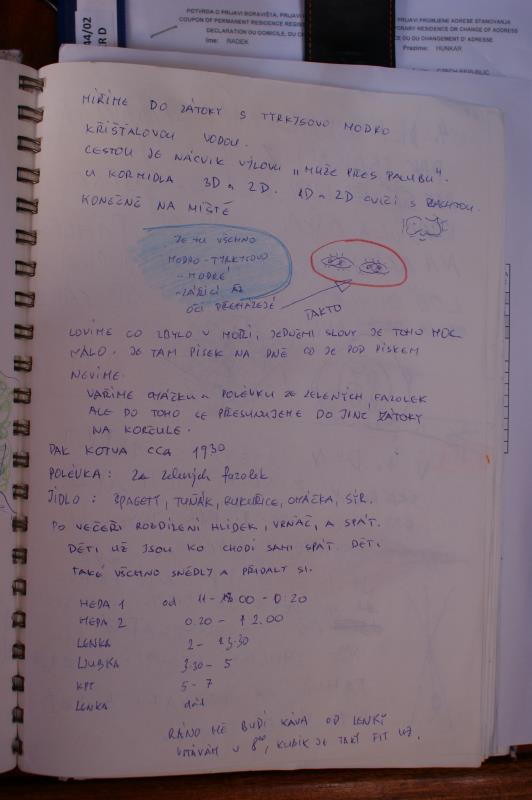 44/02
ER D
POTVRDA O PRIJAVI BORAVIŠTA, PRIJAVI
COUPON OF PERMANENT RESIDENCE REGIS
DECLARATION OU DOMICILE, DU CH
Ime: RADEK
PRIJAVI PROMJENE ADRESE STANOVANJA
PORARY RESIDENCE OR CHANGE OF ADDRESS
CE OU DU CHANGEMENT D'ADRESSE
Prezime: HUNKAR
CZECH REPUBLIC
MÍŘÍME DO ZÁTOKY S TYRKYSOVO MODRO
KŘIŠŤÁLOVOU VODOU.
CESTOU JE NÁCVIK VÝLOVU „MUŽE PŘES PALUBU".
U KORMIDLA 3D a 2D. 1D a 2D CVIČÍ S
KONEČNĚ NA MÍSTĚ
ZE TU VŠECHNO
MODRO-TYRKYSOVO
-MODRÉ
-ZÁŘÍCÍ
OČI PŘECHÁZEJÍ
TAKTO
LOVÍME CO ZBYLO V MOŘI, JEDNĚMI SLOVY JE TOHO MOC
MÁLO. JE TAM PÍSEK NA DNĚ CO JE POD PÍSKEM
NEVÍME.
VAŘÍME OMÁČKU a POLÉVKU ZE ZELENÝCH FAZOLEK
ALE DO TOHO SE PŘESUNUJEME DO JINÉ ZÁTOKY
NA KORČULE.
PAK KOTVA CCA 1930
POLÉVKA: Ze zelených fazolek
JÍDLO: ŠPAGETY, TUŇÁK, KUKUŘICE, OMÁČKA, SÝR.
PO VEČEŘI ROZDÍLENÍ HLÍDEK, VRŇAČ, A SPÁT.
DĚTI UŽ JSOU KO CHODÍ SAMI SPÁT. DĚTI
TAKÉ VŠECHNO SNĚDLY A PŘIDALY SI.
HEDA 1 od 00 - 0:20
HEDA 2 0.20 - 2.00
LENKA 2 - 3.30
LJUBKA 3.30 - 5
KPT 5 - 7
LENKA dál
RÁNO MĚ BUDÍ KÁVA OD LENKY
VSTÁVÁM V 8⁰⁰, KUBÍK JE TAKÝ FIT UŽ.